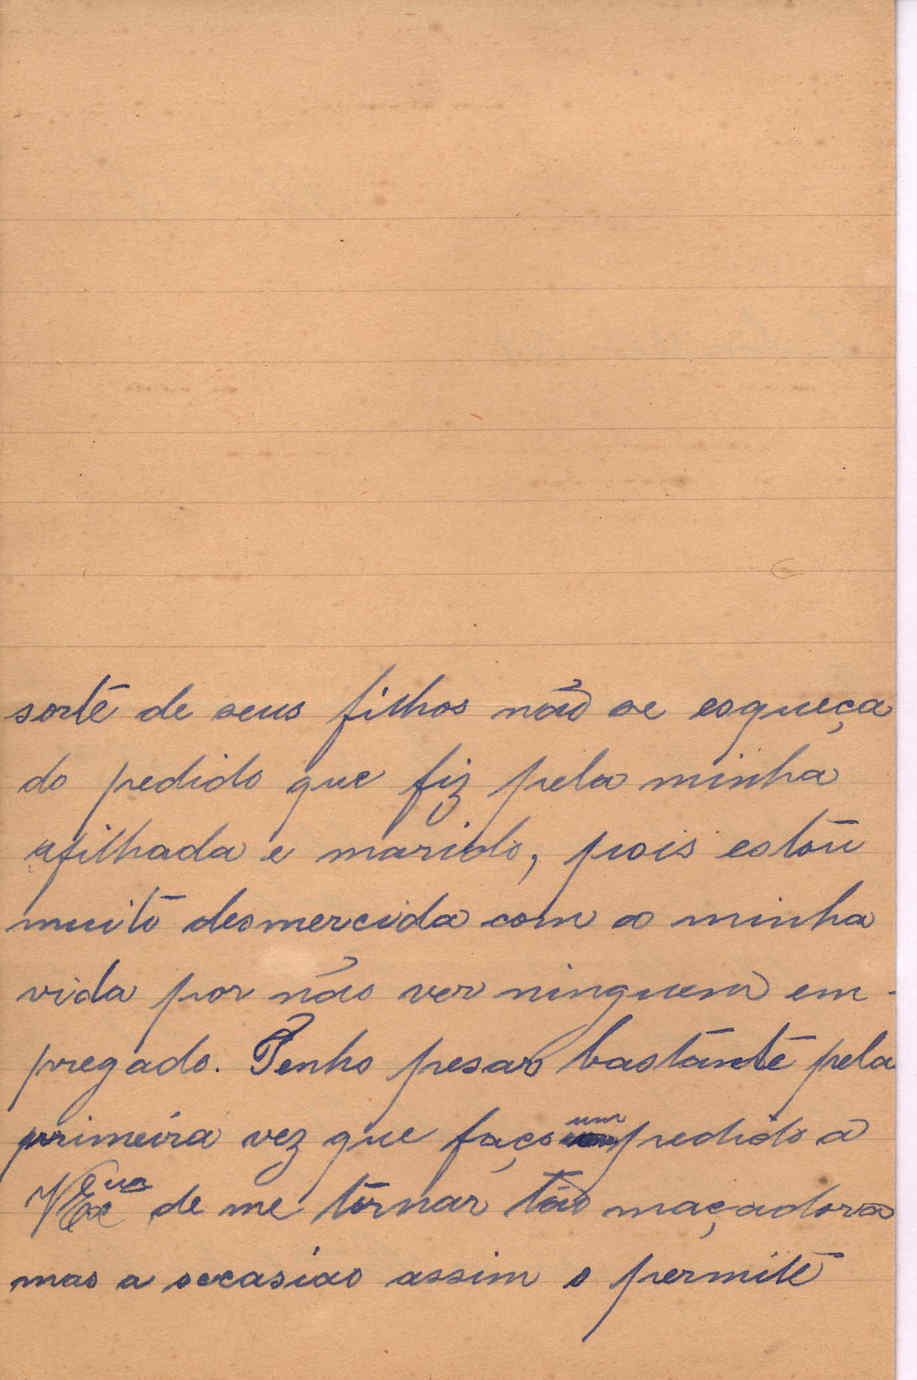 sorte de seus filhos não se esqueça
do pedido que fiz pela minha
afilhada e marido, pois estou
muito desmercida com a minha
vida por não ver ninguem em-
pregado. Tenho pesar bastante pela
primeira vez que faço um pedido a
VExª de me tornar tão maçadora
mas a occasião assim o permite